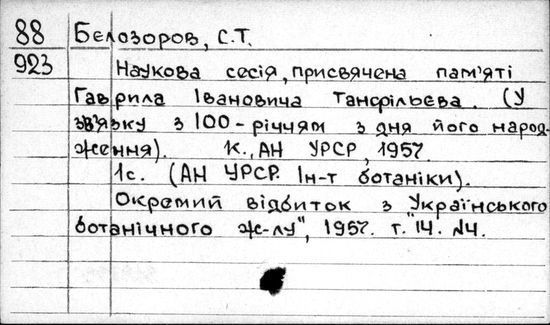 88
923
Белозоров, С.Т.
Наукова сесія, присвячена пам'яті
Гаврила Івановича Танфільєва. (У
зв'язку з 100-річчям з дня його народ-
ження). К., АН УРСР, 1957.
1с. (АН УРСР. Ін-т ботаніки).
Окремий відбиток з "Українського
ботанічного ж-лу", 1957. т. 14. №4.